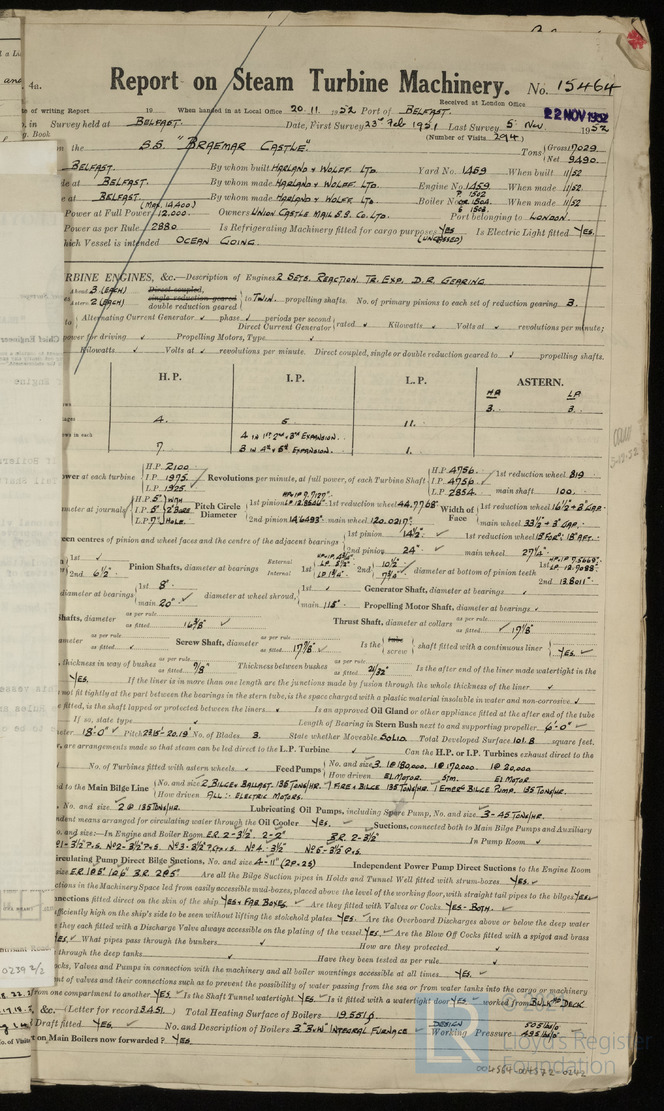 4n.
Report on Steam Turbine Machinery. No. 15464
Received at London Office
of writing Report 19 When handed in at Local Office 20.11.1952 Port of BELFAST.
22 NOV 1952
in Survey held at BELFAST. Date, First Survey 23rd Feb 1951 Last Survey 5 Nov 1952
g. Book (Number of Visits 294)
on the S.S. "BRAEMAR CASTLE" Tons Gross 17029
Net 9490.
BELFAST. By whom built HARLAND & WOLFF LTD. Yard No. 1459 When built 11/52
BELFAST. By whom made HARLAND & WOLFF LTD. Engine No. 1459 When made 11/52
BELFAST By whom made HARLAND & WOLFF LTD. Boiler No. When made 11/52
(MAX. 14,400)
Power at Full Power 12,000. Owners UNION CASTLE MAIL S.S. CO. LTD. Port belonging to LONDON.
Power as per Rule 2880 Is Refrigerating Machinery fitted for cargo purposes YES (UNCLASSED) Is Electric Light fitted YES.
which Vessel is intended OCEAN GOING.
TURBINE ENGINES, &c.—Description of Engines 2 SETS. REACTION. TR. EXP. D.R. GEARING
Ahead 3 (EACH) Direct coupled,
Astern 2 (EACH) single reduction geared
double reduction geared to TWIN. propelling shafts. No. of primary pinions to each set of reduction gearing 3.
Alternating Current Generator phase periods per second
Direct Current Generator rated Kilowatts Volts at revolutions per minute;
power for driving Propelling Motors, Type
Kilowatts Volts at revolutions per minute. Direct coupled, single or double reduction geared to propelling shafts.
H. P. I. P. L. P. ASTERN.
HP LP
3. 3.
4. 5 11.
4 IN 1st 2nd & 3rd EXPANSION.
7 3 IN 4th & 5th EXPANSION. 1.
Power at each turbine H.P. 2100 I.P. 1975 L.P. 1925 Revolutions per minute, at full power, of each Turbine Shaft H.P. 4756. I.P. 4756. L.P. 2854. 1st reduction wheel 819 main shaft 100.
diameter at journals H.P. 5" I.P. 5" L.P. 7" WITH 2" BORE HOLE. Pitch Circle Diameter 1st pinion 1st reduction wheel 44.7768" Width of Face 1st reduction wheel 16½" + 3" GAP.
2nd pinion 14.6493" main wheel 120.0217" main wheel 33½" + 3" GAP.
between centres of pinion and wheel faces and the centre of the adjacent bearings 1st pinion 14½" 1st reduction wheel 15" FOR'D. 18" AFT.
2nd pinion 24" main wheel 27¼"
1st 2nd 6½" Pinion Shafts, diameter at bearings External Internal 1st 2nd 10½" diameter at bottom of pinion teeth 1st 2nd 13.8011"
diameter at bearings 1st 8" main 20" diameter at wheel shroud, 1st main 115" Generator Shaft, diameter at bearings
Propelling Motor Shaft, diameter at bearings
Shafts, diameter as per rule as fitted 16⅜" Thrust Shaft, diameter at collars as per rule as fitted 17⅛"
diameter as per rule as fitted Screw Shaft, diameter as per rule as fitted 17⅞" Is the tube screw shaft fitted with a continuous liner YES.
thickness in way of bushes as per rule as fitted ⅞" Thickness between bushes as per rule as fitted 21/32" Is the after end of the liner made watertight in the
YES. If the liner is in more than one length are the junctions made by fusion through the whole thickness of the liner
not fit tightly at the part between the bearings in the stern tube, is the space charged with a plastic material insoluble in water and non-corrosive
fitted, is the shaft lapped or protected between the liners Is an approved Oil Gland or other appliance fitted at the after end of the tube
If so, state type Length of Bearing in Stern Bush next to and supporting propeller 6'-0"
18'-0" Pitch No. of Blades 3. State whether Moveable SOLID Total Developed Surface 101.8 square feet.
are arrangements made so that steam can be led direct to the L.P. Turbine Can the H.P. or I.P. Turbines exhaust direct to the
No. of Turbines fitted with astern wheels Feed Pumps No. and size 3. 1@180,000. 1@170,000 1@20,000
How driven EL MOTOR. STM. EL MOTOR
to the Main Bilge Line No. and size 2 BILGE & BALLAST. 135 TONS/HR. 7 FIRE & BILGE 135 TONS/HR. 1 EMERG BILGE PUMP. 135 TONS/HR.
How driven ALL :- ELECTRIC MOTORS.
No. and size 2 @ 135 TONS/HR. Lubricating Oil Pumps, including Spare Pump, No. and size 3-45 TONS/HR
independent means arranged for circulating water through the Oil Cooler YES. Suctions, connected both to Main Bilge Pumps and Auxiliary
No. and size:—In Engine and Boiler Room E.R. 2-3½" 2-2" B.R. 2-3½" In Pump Room
Nº1-3½" P.&S. Nº2-3½" P.&S. Nº3-3½" P.&S. Nº4.3½" Nº5-3½" P.S.
Circulating Pump Direct Bilge Suctions, No. and size 4-11" (2P.2S) Independent Power Pump Direct Suctions to the Engine Room
size E.R. 1@5" 1@6" B.R. 2@5" Are all the Bilge Suction pipes in Holds and Tunnel Well fitted with strum-boxes YES.
Suctions in the Machinery Space led from easily accessible mud-boxes, placed above the level of the working floor, with straight tail pipes to the bilges YES
connections fitted direct on the skin of the ship YES & FAB BOXES. Are they fitted with Valves or Cocks YES-BOTH.
sufficiently high on the ship's side to be seen without lifting the stokehold plates YES. Are the Overboard Discharges above or below the deep water
they each fitted with a Discharge Valve always accessible on the plating of the vessel YES. Are the Blow Off Cocks fitted with a spigot and brass
YES. What pipes pass through the bunkers How are they protected
through the deep tanks Have they been tested as per rule
Cocks, Valves and Pumps in connection with the machinery and all boiler mountings accessible at all times YES.
arrangement of valves and their connections such as to prevent the possibility of water passing from the sea or from water tanks into the cargo or machinery
from one compartment to another YES Is the Shaft Tunnel watertight YES Is it fitted with a watertight door YES worked from BULKHD DECK
&c.—(Letter for record 3451.) Total Heating Surface of Boilers 19,551
Draft fitted YES. No. and Description of Boilers 3. "B&W" INTEGRAL FURNACE DESIGN Working Pressure
on Main Boilers now forwarded? YES.
© 20
Lloyd's Register
Foundation
004564-004572-0242
0239 2/2